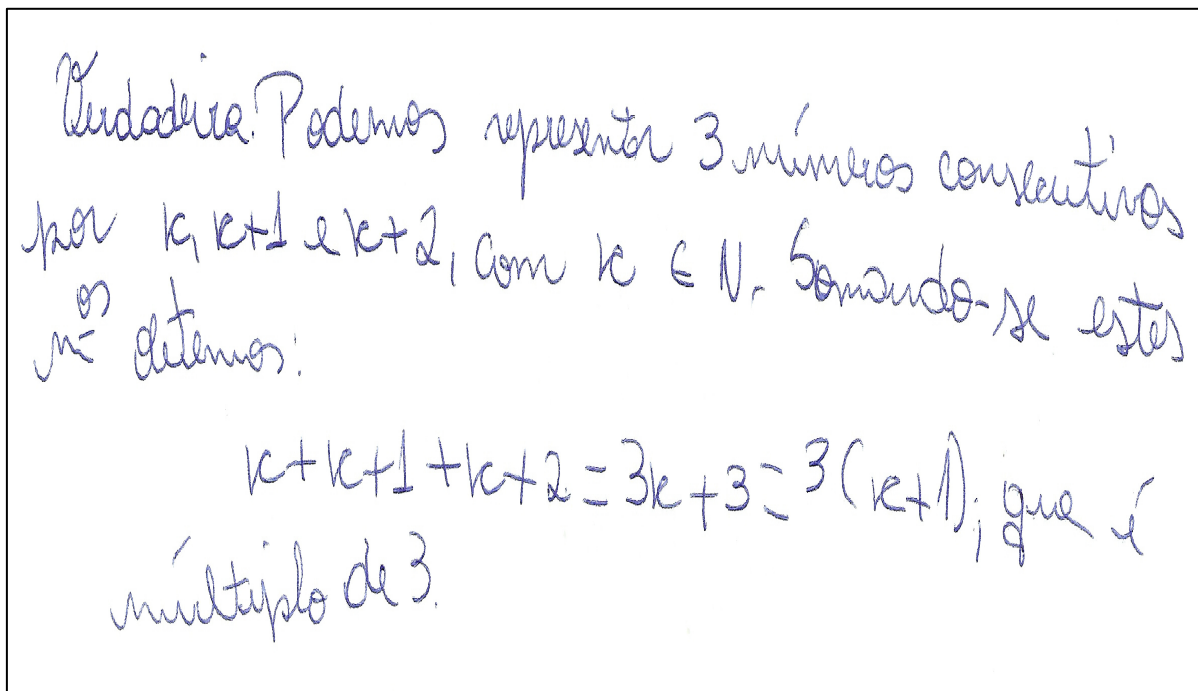 Verdadeira. Podemos representar 3 números consecutivos
por k, k+1 e k+2, com k ∈ N. Somando-se estes
nos obtemos:
k+k+1+k+2=3k+3=3(k+1), que é
múltiplo de 3.